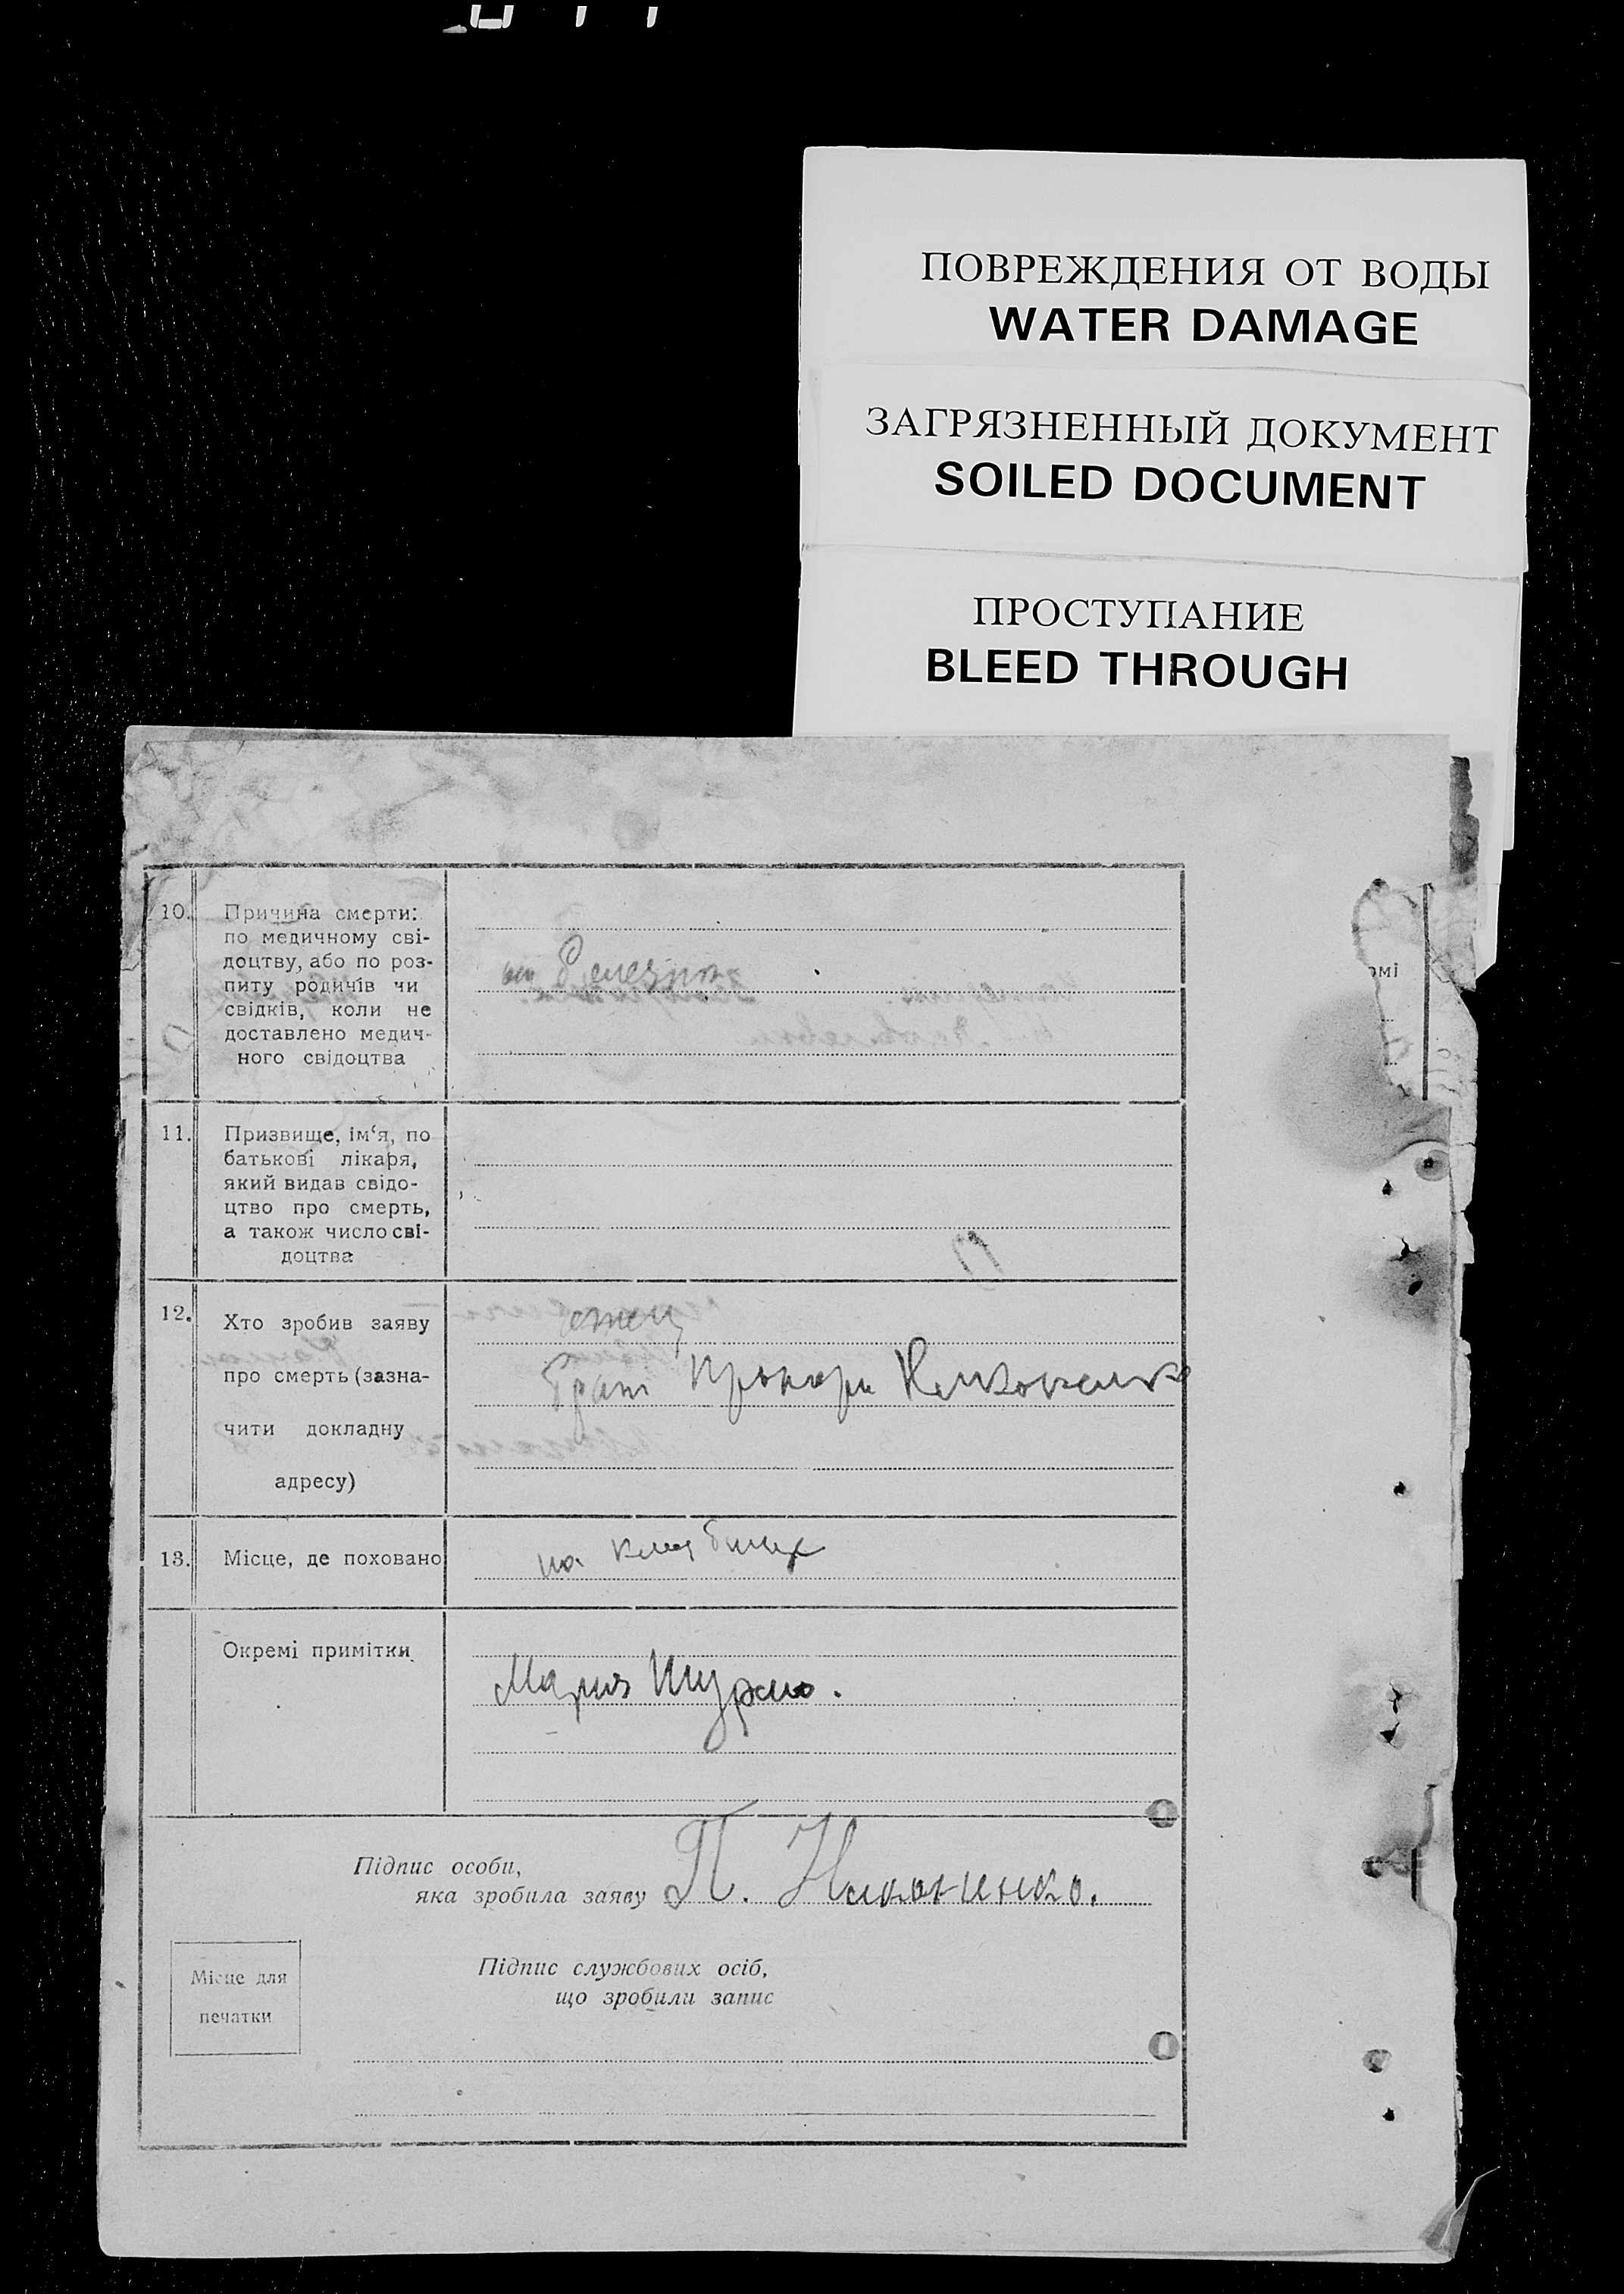 ПОВРЕЖДЕНИЯ ОТ ВОДЫ
WATER DAMAGE
ЗАГРЯЗНЕННЫЙ ДОКУМЕНТ
SOILED DOCUMENT
ПРОСТУПАНИЕ
BLEED THROUGH
10. Причина смерти:
по медичному сві-
доцтву, або по роз-
питу родичів чи
свідків, коли не
доставлено медич-
ного свідоцтва
11. Призвище, ім‘я, по
батькові лікаря,
який видав свідо-
цтво про смерть,
а також число сві-
доцтва
12. Хто зробив заяву
про смерть (зазна-
чити докладну
адресу)
брат
13. Місце, де поховано
на
Окремі примітки
Мария
Підпис особи,
яка зробила заяву П.
Місце для
печатки
Підпис службових осіб,
що зробили запис